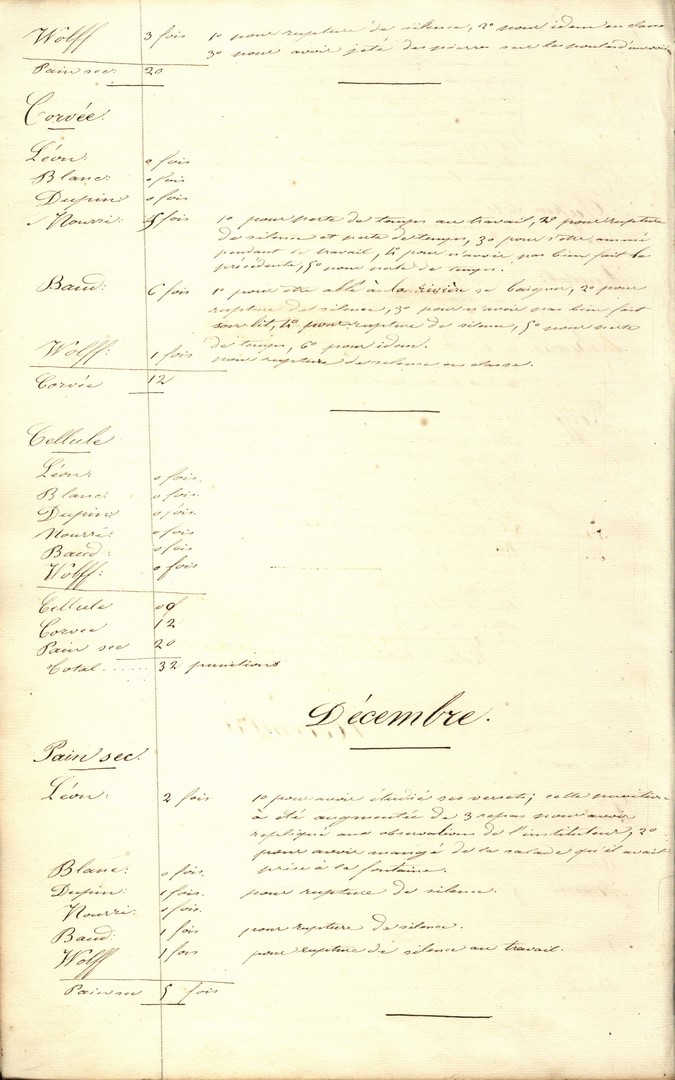 Wolff 3 fois 1o pour rupture de silence, 2o pour idem en classe
3o pour avoir jeté des pierres sur les
Pain sec: 20
Corvée.
Léon: 0 fois
Blanc: 0 fois
Dupin: 0 fois
Nourri: 5 fois 1o pour perte de temps au travail, 2o pour rupture
de silence et perte de temps, 3o pour s'être amusé
pendant le travail, 4o pour n'avoir pas bien fait la
précédente, 5o pour perte de temps.
Baud: 6 fois 1o pour être allé à la rivière se baigner, 2o pour
rupture de silence, 3o pour n'avoir pas bien fait
son lit, 4o pour rupture de silence, 5o pour perte
de temps, 6o pour idem.
Wolff: 1 fois pour rupture de silence en classe.
Corvée 12
Cellule
Léon: 0 fois.
Blanc: 0 fois.
Dupin: 0 fois.
Nourri: 0 fois
Baud: 0 fois
Wolff: 0 fois
Cellule 00
Corvée 12
Pain sec 20
Total...... 32 punitions
Décembre.
Pain sec.
Léon: 2 fois 1o pour avoir étudié ses versets; cette punition
a été augmentée de 3 repas pour avoir
repliqué aux observations de l'instituteur, 2o
pour avoir mangé de la salade qu'il avait
prise à la fontaine.
Blanc: 0 fois.
Dupin: 1 fois. pour rupture de silence.
Nourri: 0 fois.
Baud: 1 fois pour rupture de silence.
Wolff 1 fois pour rupture de silence au travail.
Pain sec 5 fois